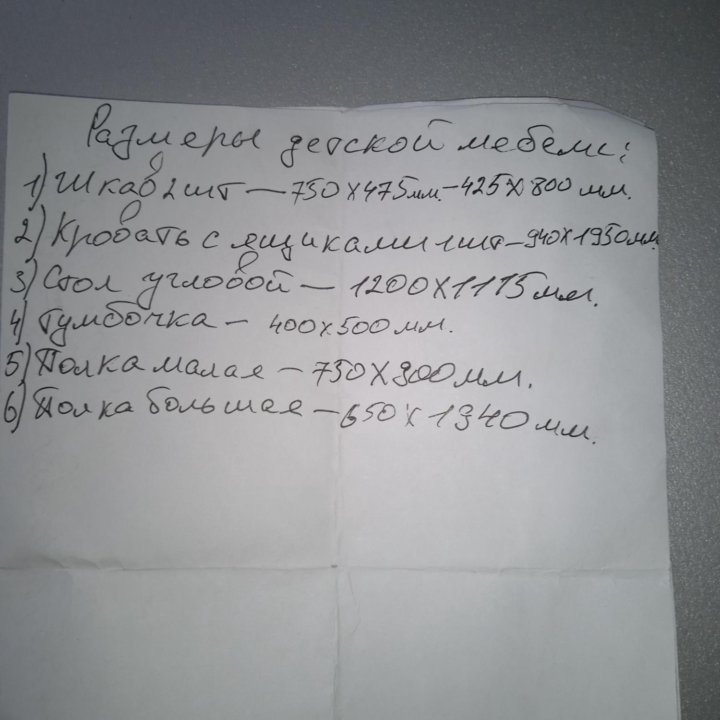 Размеры детской мебели:
1) Шкаф 2 шт — 750 х 475 мм. – 425 х 800 мм.
2) Кровать с ящиками 1 шт – 940 х 1950 мм.
3) Стол угловой — 1200 х 1115 мм.
4) Тумбочка – 400 х 500 мм.
5) Полка малая – 750 х 900 мм.
6) Полка большая – 650 х 1340 мм.